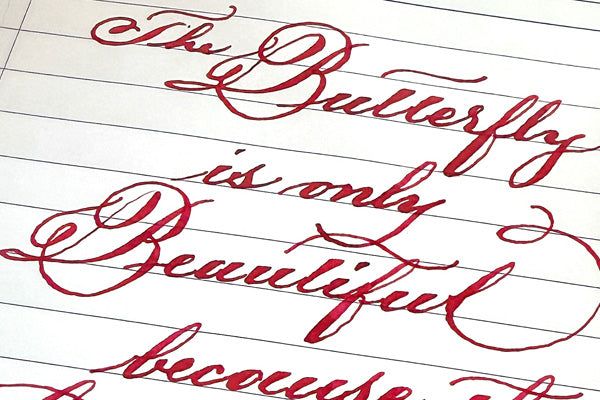 The Butterfly
is only
Beautiful
because